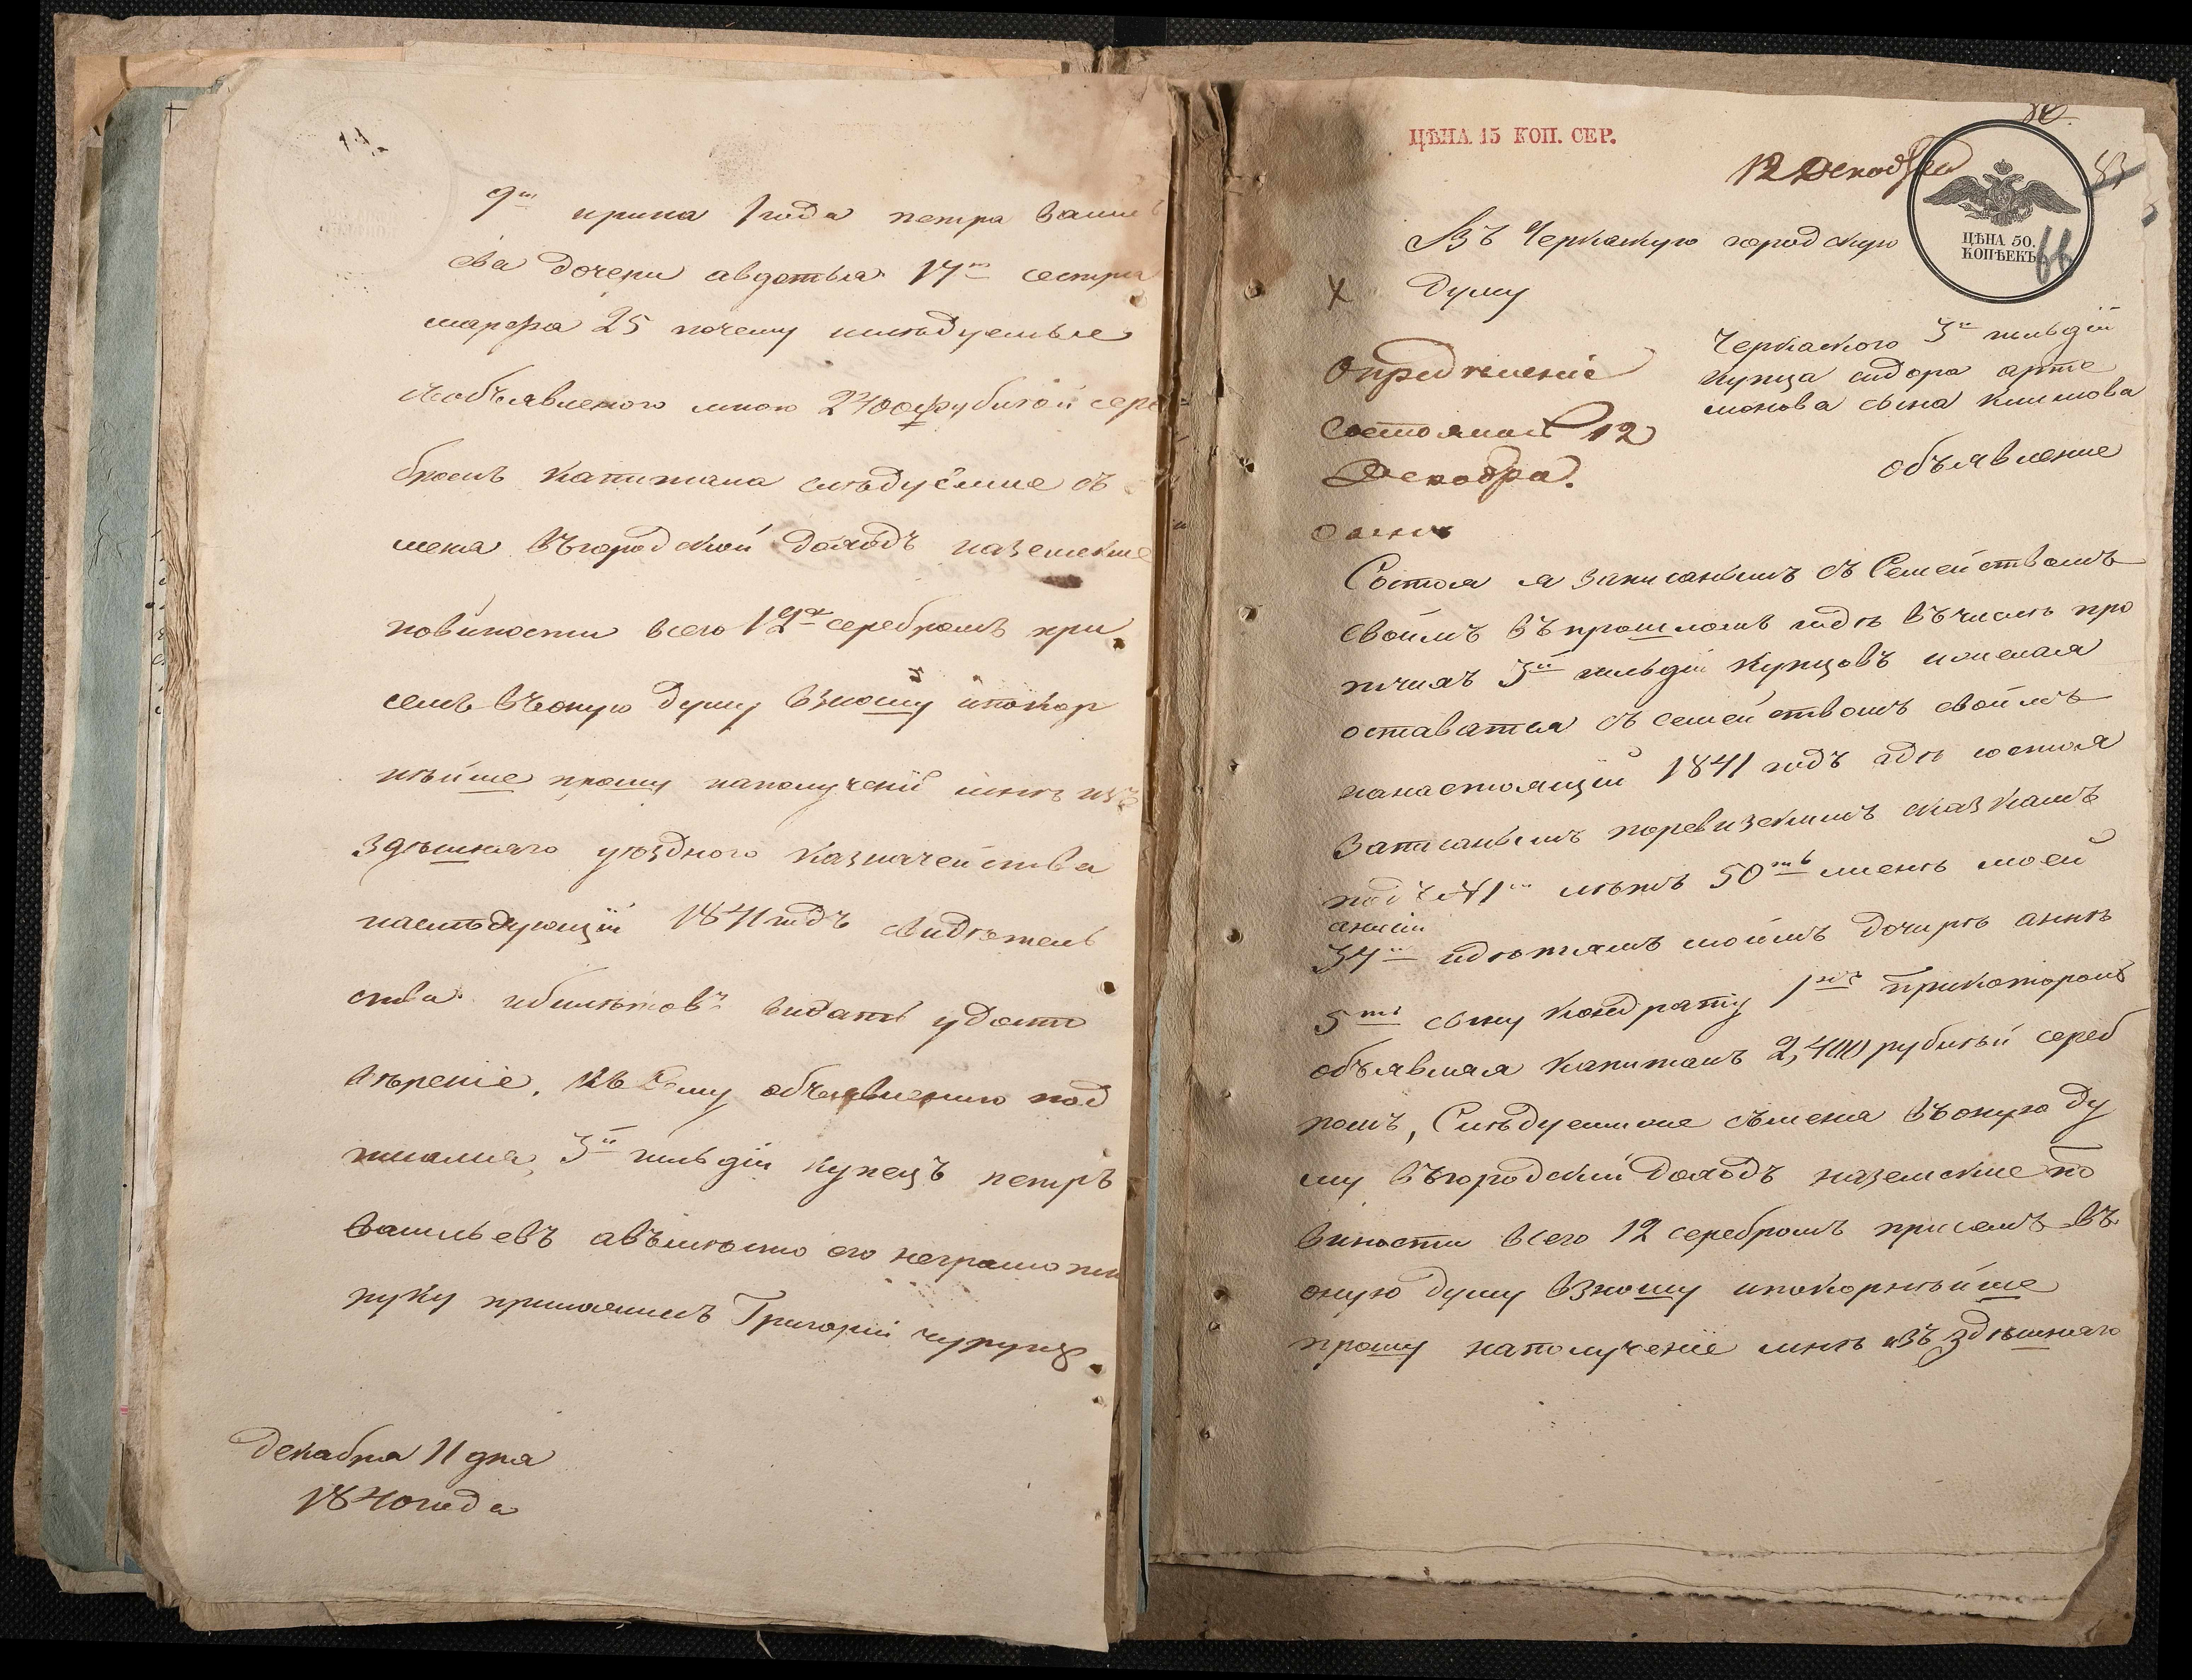 9ти ирина 1 года петра васил
ева дочери авдотья 17ти сестра
марфа 25 почему
собъявленого мною 2400 рублей сере
бромъ капитала следуемые съ
меня въгородской доходъ наземские
повиности всего 12 серебромъ при
семъ въоную думу взношу ипокор
нейше прошу наполучений мне изъ
здешняго уездного казначейства
наследующій 1841 годъ свидетель
ства ибилетовъ видать удосто
верение. Къ Сему объявлению под
писался, 3й гильдіи купецъ петръ
васильевъ авъместо его неграмотн
руку приложилъ Григорій
декабря 11 дня
1840 года
ЦѢНА 15 КОП. СЕР.
12 Декабря
ЦѢНА 50.
КОПѢЕКЪ
66
Въ Черкаскую городскую
Думу
Черкаского 3й гильдіи
купца сидора арте
монова сына климова
объявление
Определеніе
Состоялось 12
Декабря.
Состоя я записанымъ съ Семействомъ
своимъ въпрошломъ годе въчисле про
тчихъ 3й гильдіи купцовъ ижелая
оставатся съ семействомъ своимъ
нанастоящій 1841 годъ где состоя
Записанымъ поревизскимъ сказкамъ
подъ №1м летъ 50ть жене моей
анисіи
34 идетямъ моимъ дочире анне
5ти сыну кондрату 1 прикоторомъ
объявляя капиталъ 2,400 рублей сереб
ромъ, Следуемиые сьменя въоную ду
му въгородскій Доходъ наземские по
виности всего 12 серебромъ присемъ въ
оную думу взношу ипокорнейше
прошу наполучение мне изъ здешняго